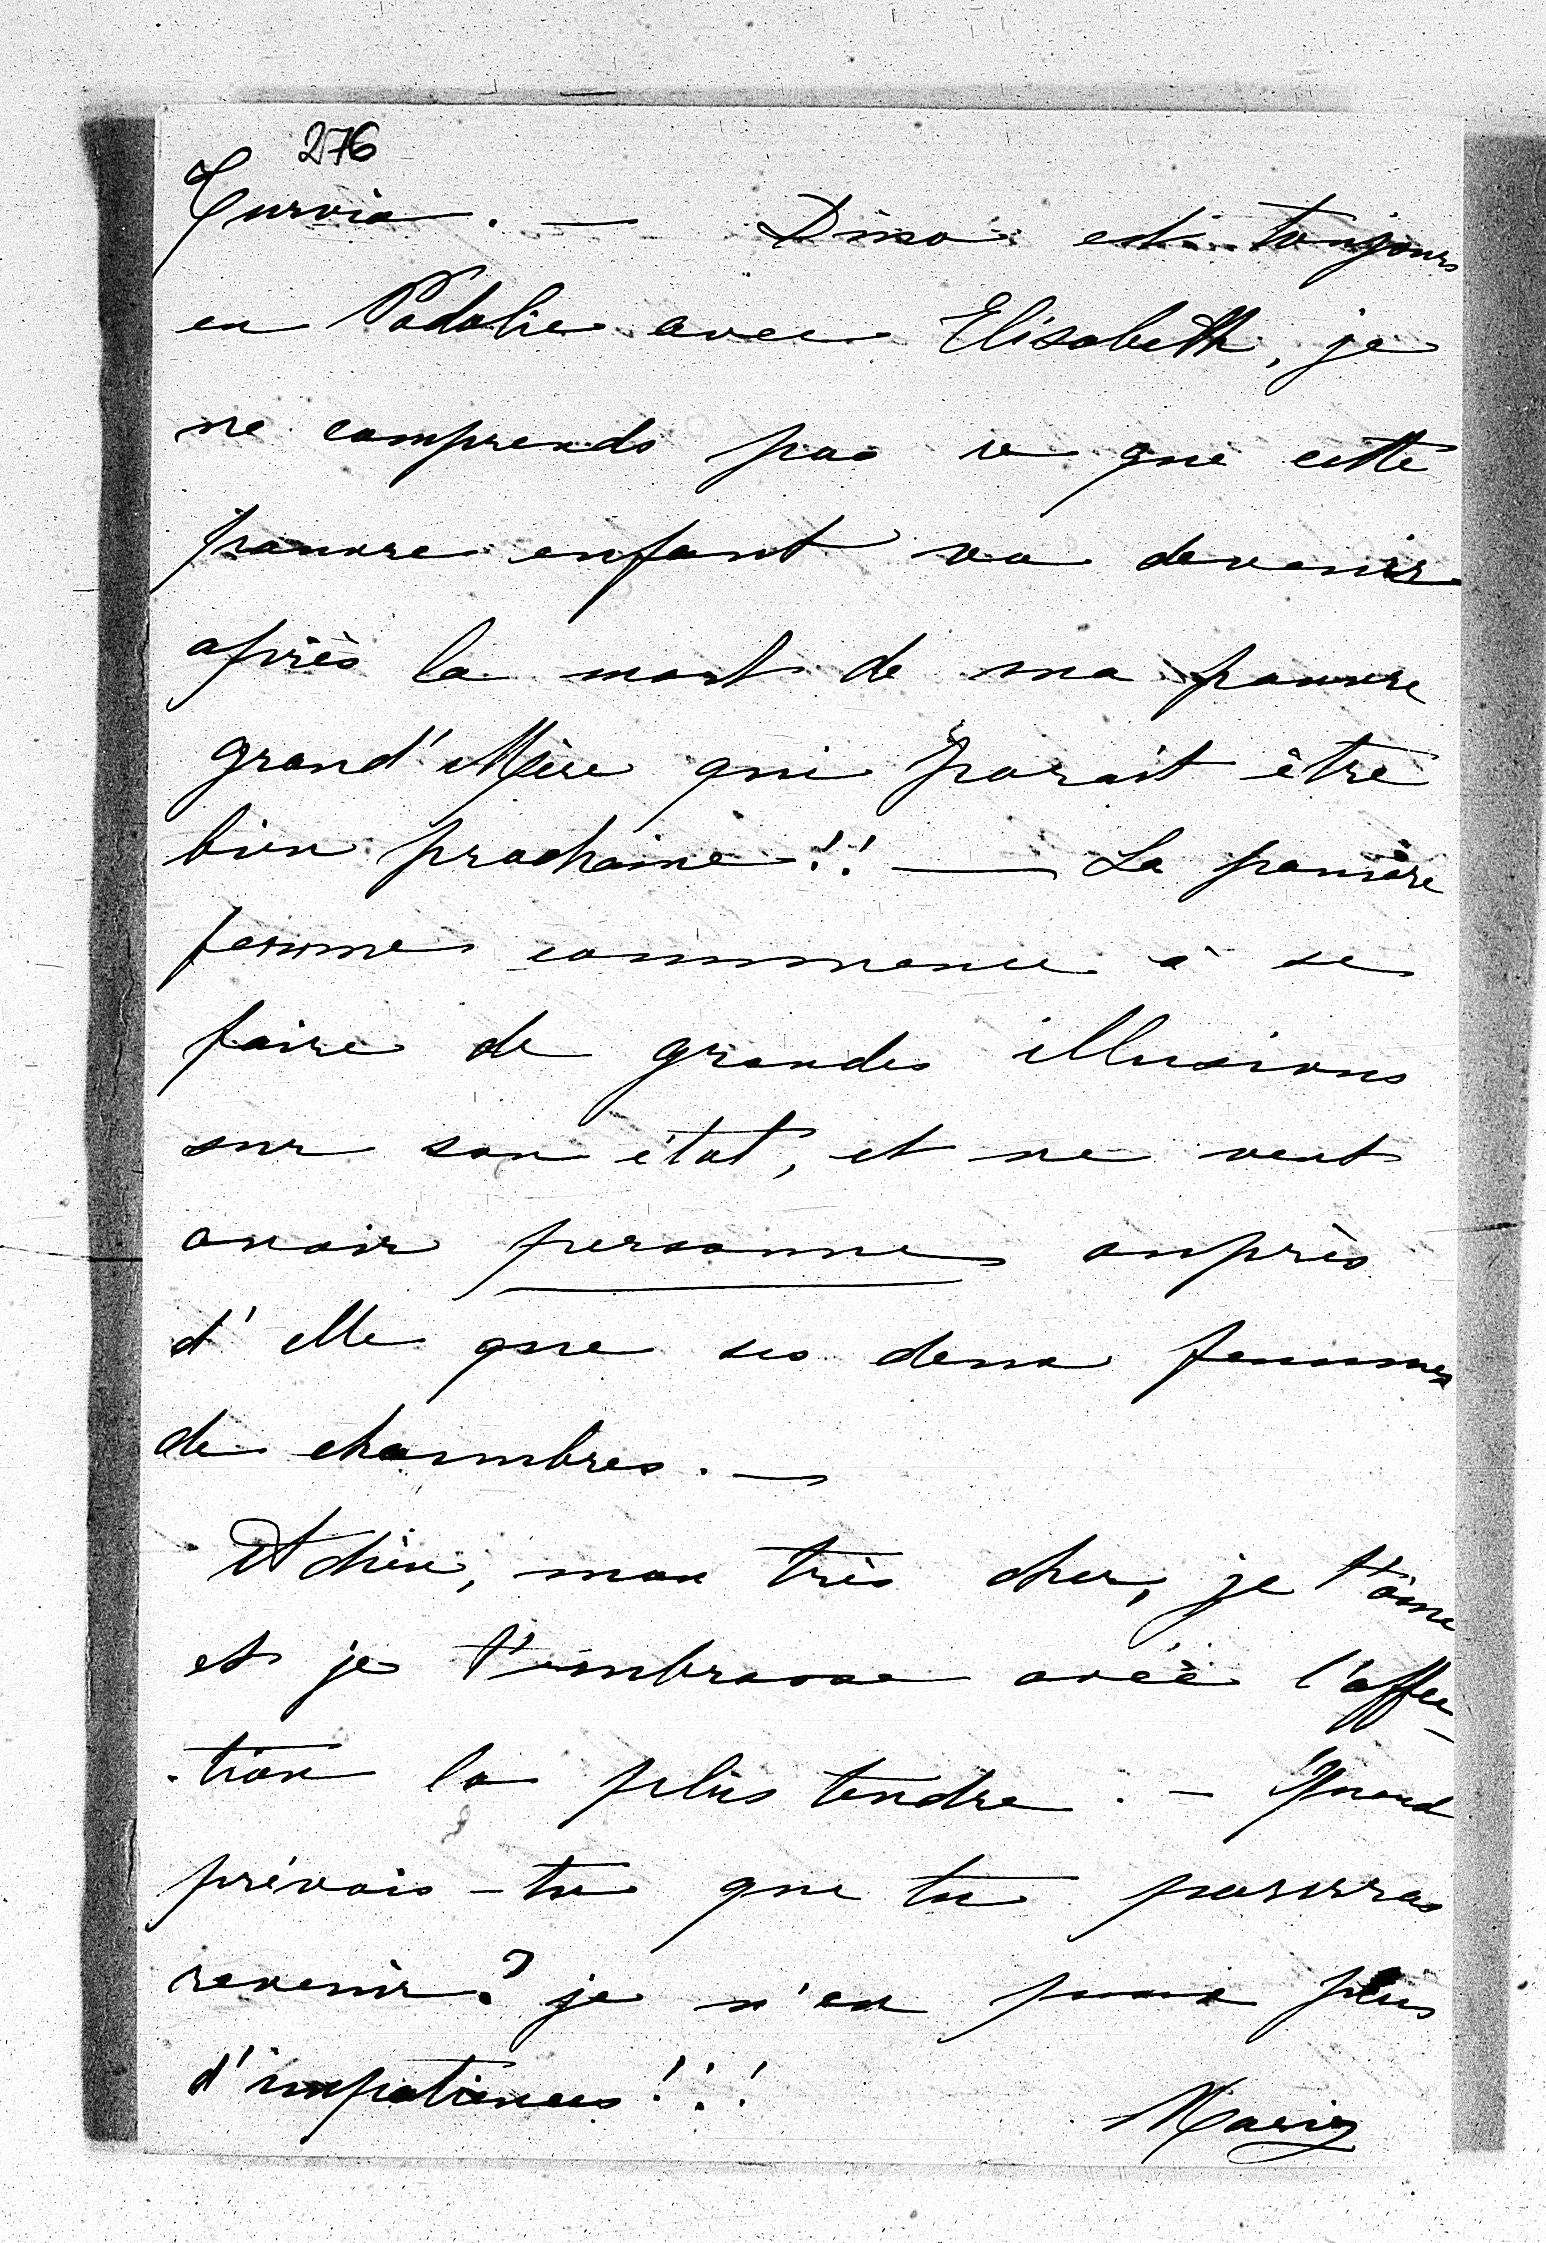 276
Turvia. — Dino est toujours
en Podolie avec Elisabeth, je
ne comprends pas ce que cette
pauvre enfant va devenir
après la mort de ma pauvre
grand'Mère qui parait être
bien prochaine!! — La pauvre
femme commence à se
faire de grandes illusions
sur son état, et ne veut
avoir personne auprès
d'elle que ses deux femmes
de chambres. —
Adieu, mon très cher, je t'aime
et je t'embrasse avec l'affec-
-tion la plus tendre. — Quand
prévois-tu que tu pourras
revenir? je n'en puis plus
d'impatiences!!!
Marie